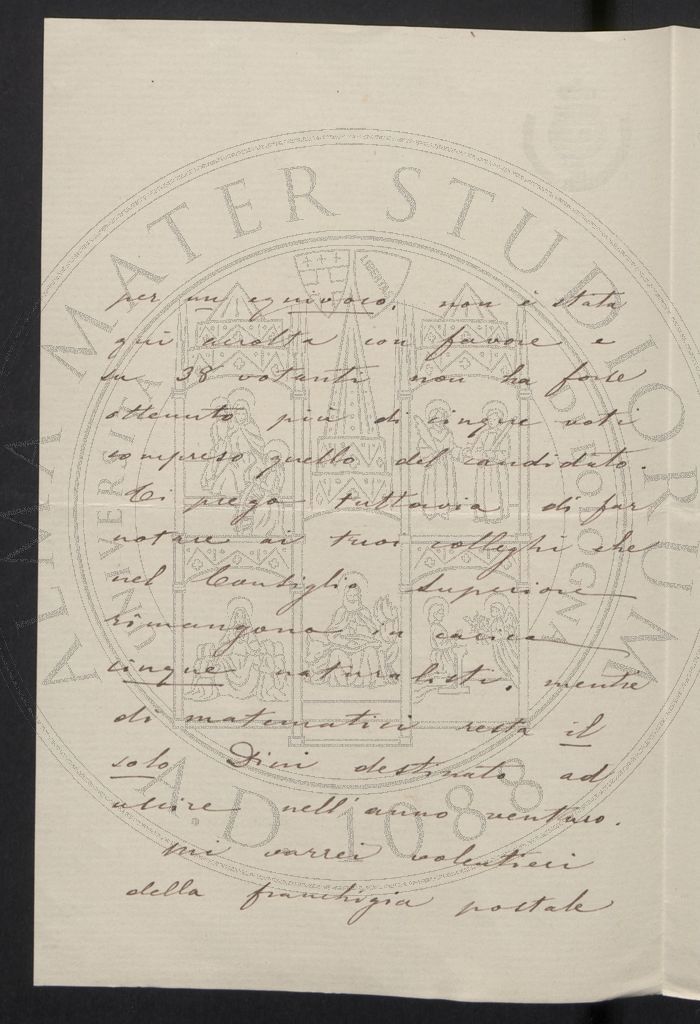 per un equivoco, non è stata
qui accolta con favore e
su 38 votanti non ha forse
ottenuto più di cinque voti
compreso quello del candidato.
Ti prego tuttavia di far
notare ai tuoi colleghi che
nel Consiglio superiore
rimangono in carica
cinque naturalisti, mentre
di matematici resta il
solo Dini destinato ad
uscire nell'anno venturo.
Mi varrei volentieri
della franchigia postale
ALMA MATER STUDIORUM
UNIVERSITÀ DI BOLOGNA
LIBERTAS
A.D. 1088